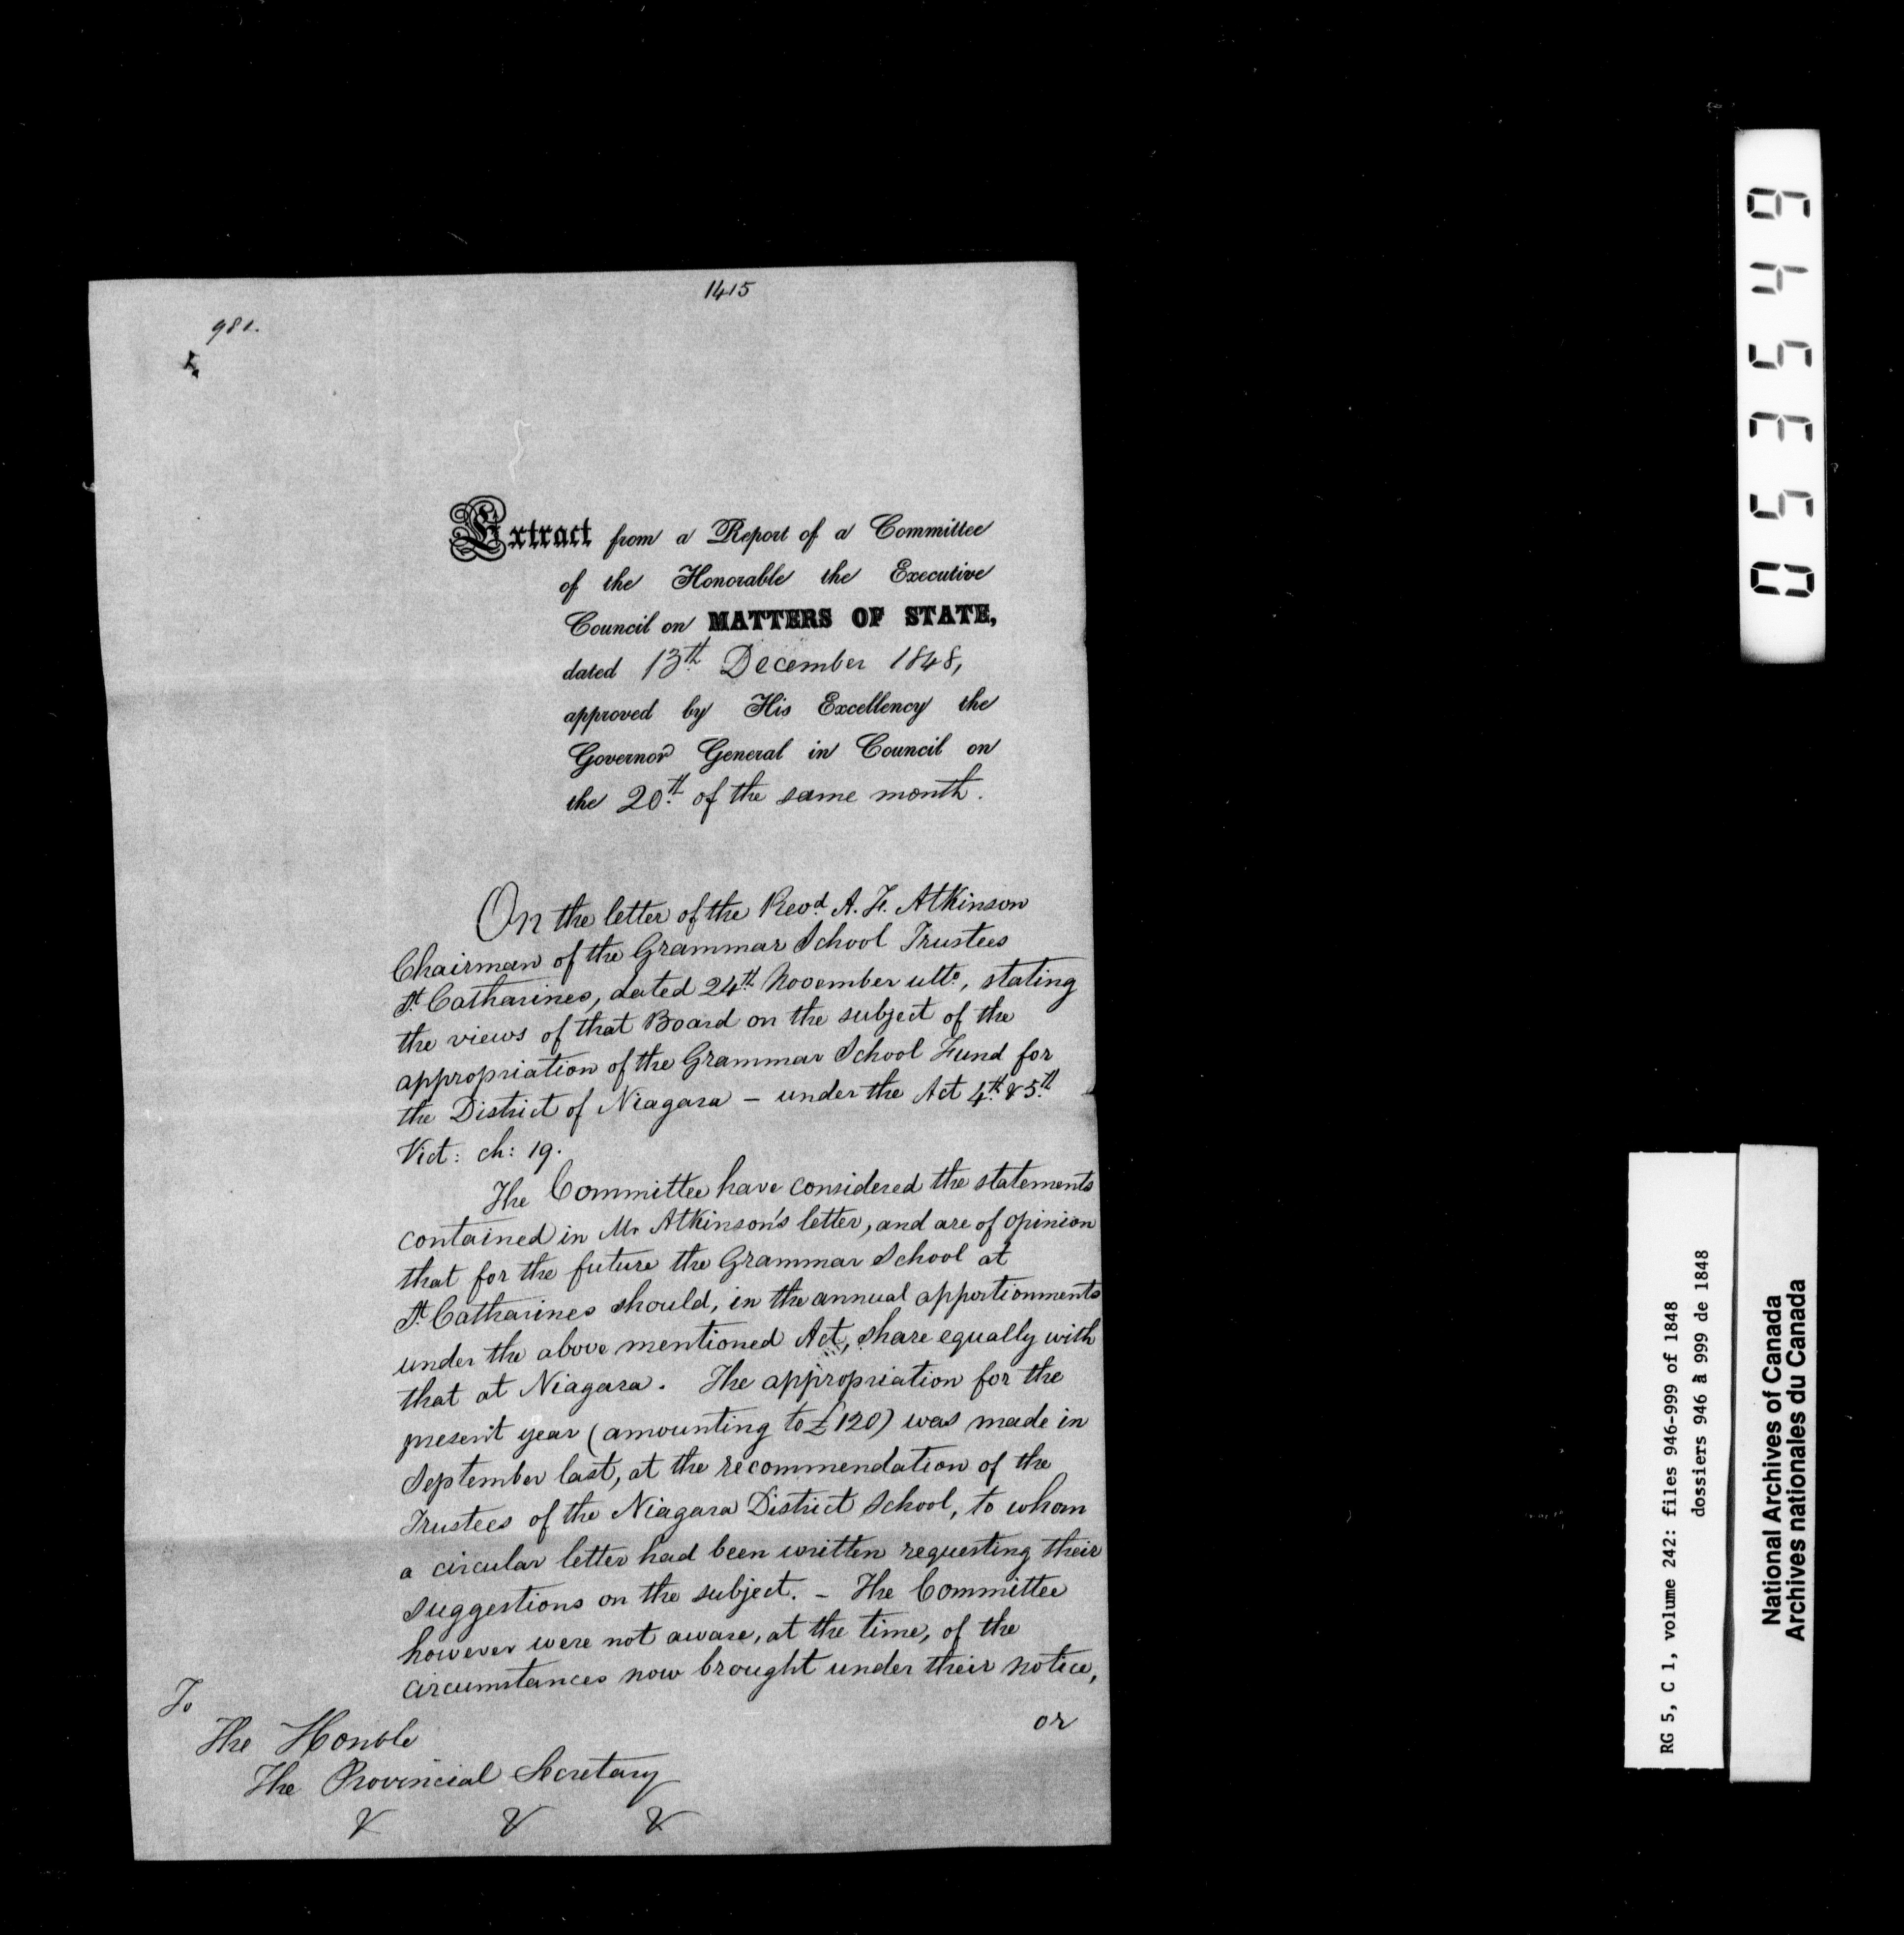 1415
981.
Extract from a Report of a Committee
of the Honorable the Executive
Council on MATTERS OF STATE,
dated 13th December 1848,
approved by His Excellency the
Governor General in Council on
the 20th of the same month.
On the letter of the Revd A. F. Atkinson
Chairman of the Grammar School Trustees
St Catharines, dated 24th November ulto, stating
the views of that Board on the subject of the
appropriation of the Grammar School Fund for
the District of Niagara – under the Act 4th & 5th
Vict: ch: 19.
The Committee have considered the statements
contained in Mr Atkinson's letter, and are of opinion
that for the future the Grammar School at
St Catharines should, in the annual apportionments
under the above mentioned Act, share equally with
that at Niagara. The appropriation for the
present year (amounting to £120) was made in
September last, at the recommendation of the
Trustees of the Niagara District School, to whom
a circular letter had been written requesting their
suggestions on the subject. – The Committee
however were not aware, at the time, of the
circumstances now brought under their notice,
or
To
The Honble
The Provincial Secretary
& & &
053549
RG 5, C 1, volume 242: files 946-999 of 1848
dossiers 946 à 999 de 1848
National Archives of Canada
Archives nationales du Canada